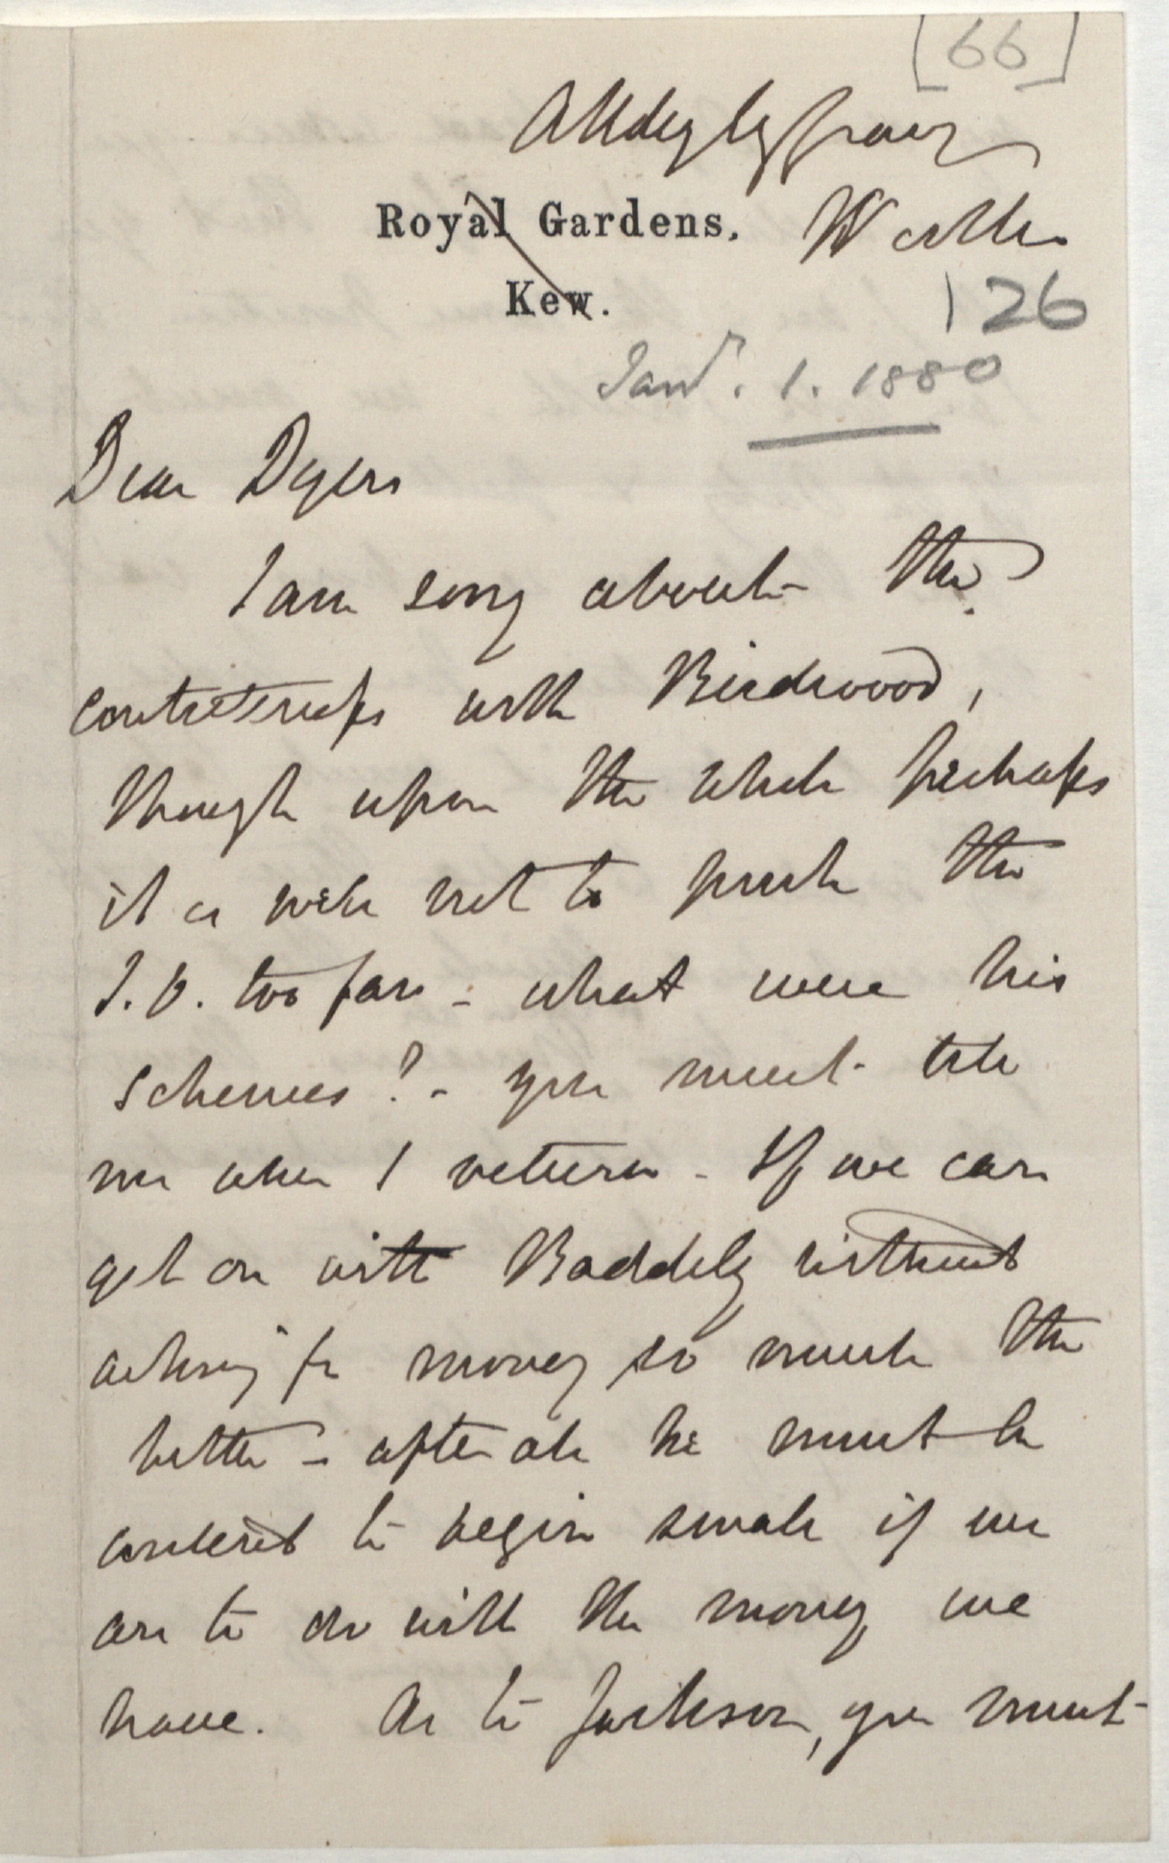 [66]
Royal Gardens.
Kew.
126
Jany. 1. 1880
Dear Dyer
I am sorry about the
contretemps with Birdwood,
though upon the whole perhaps
it is well not to push the
I.O. too far - what were his
schemes? - you must tell
me when I return - If we can
get on with Baddely without
asking for money so much the
better - after all he must be
content to begin small if we
are to do with the money we
have. As to Jackson, you must